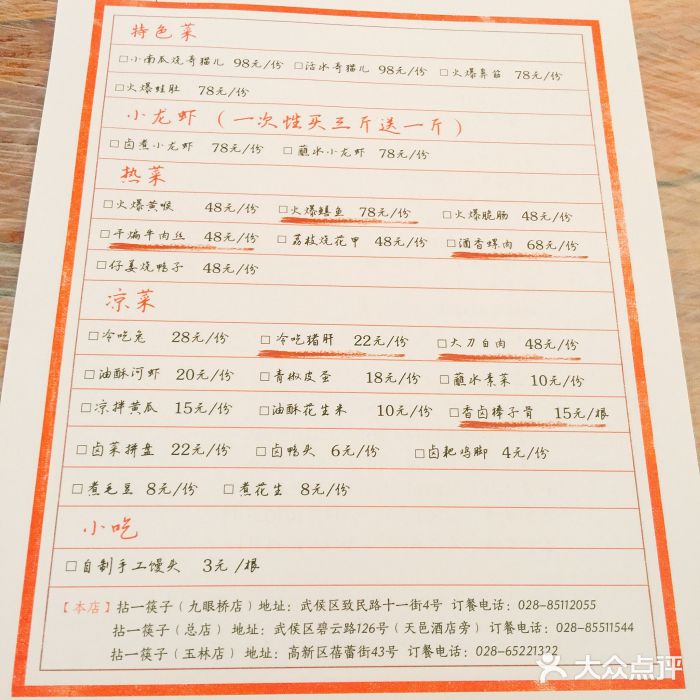 特色菜
□小南瓜烧哥猫儿 98元/份 □活水哥猫儿 98元/份 □火爆鼻筋 78元/份
□火爆蛙肚 78元/份
小龙虾（一次性买三斤送一斤）
□卤煮小龙虾 78元/份 □蘸水小龙虾 78元/份
热菜
□火爆黄喉 48元/份 □火爆鳝鱼 78元/份 □火爆脆肠 48元/份
□干煸牛肉丝 48元/份 □荔枝烧花甲 48元/份 □酒香螺肉 68元/份
□仔姜烧鸭子 48元/份
凉菜
□冷吃兔 28元/份 □冷吃猪肝 22元/份 □大刀白肉 48元/份
□油酥河虾 20元/份 □青椒皮蛋 18元/份 □蘸水素菜 10元/份
□凉拌黄瓜 15元/份 □油酥花生米 10元/份 □香卤棒子骨 15元/根
□卤菜拼盘 22元/份 □卤鸭头 6元/份 □卤耙鸡脚 4元/份
□煮毛豆 8元/份 □煮花生 8元/份
小吃
□自制手工馒头 3元/根
【本店】拈一筷子（九眼桥店）地址：武侯区致民路十一街4号 订餐电话：028-85112055
拈一筷子（总店）地址：武侯区碧云路126号（天邑酒店旁）订餐电话：028-85511544
拈一筷子（玉林店）地址：高新区蓓蕾街43号 订餐电话：028-65221322
大众点评